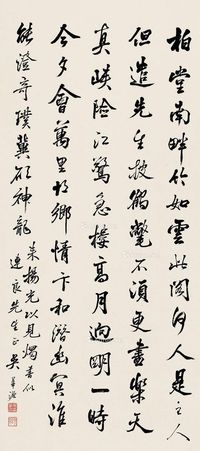 柏堂南畔竹如雲此閣何人是主人
但遣先生披鶴氅不須更畫樂天
真峽險江驚急樓高月迥明一時
今夕會萬里故鄉情卞和潛幽冥誰
能證奇璞冀願神龍
来揚光以見燭書似
連良先生正吳華源